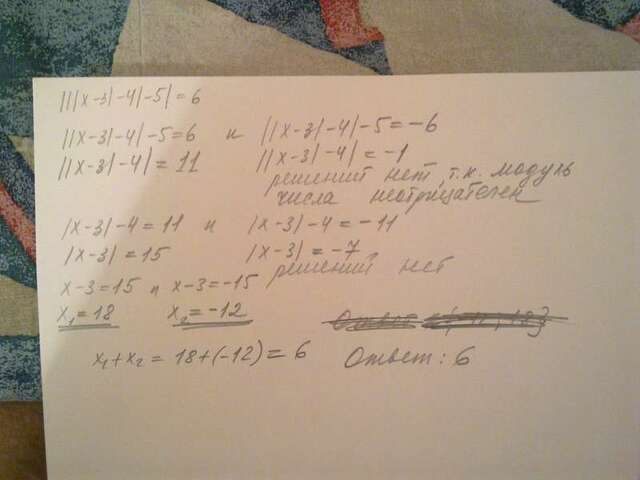 |||x-3|-4|-5|=6
||x-3|-4|-5=6 и ||x-3|-4|-5=-6
||x-3|-4|=11 ||x-3|-4|=-1
решений нет, т.к. модуль
числа неотрицателен
|x-3|-4=11 и |x-3|-4=-11
|x-3|=15 |x-3|=-7
решений нет
x-3=15 и x-3=-15
x₁=18 x₂=-12
x₁+x₂=18+(-12)=6 Ответ: 6